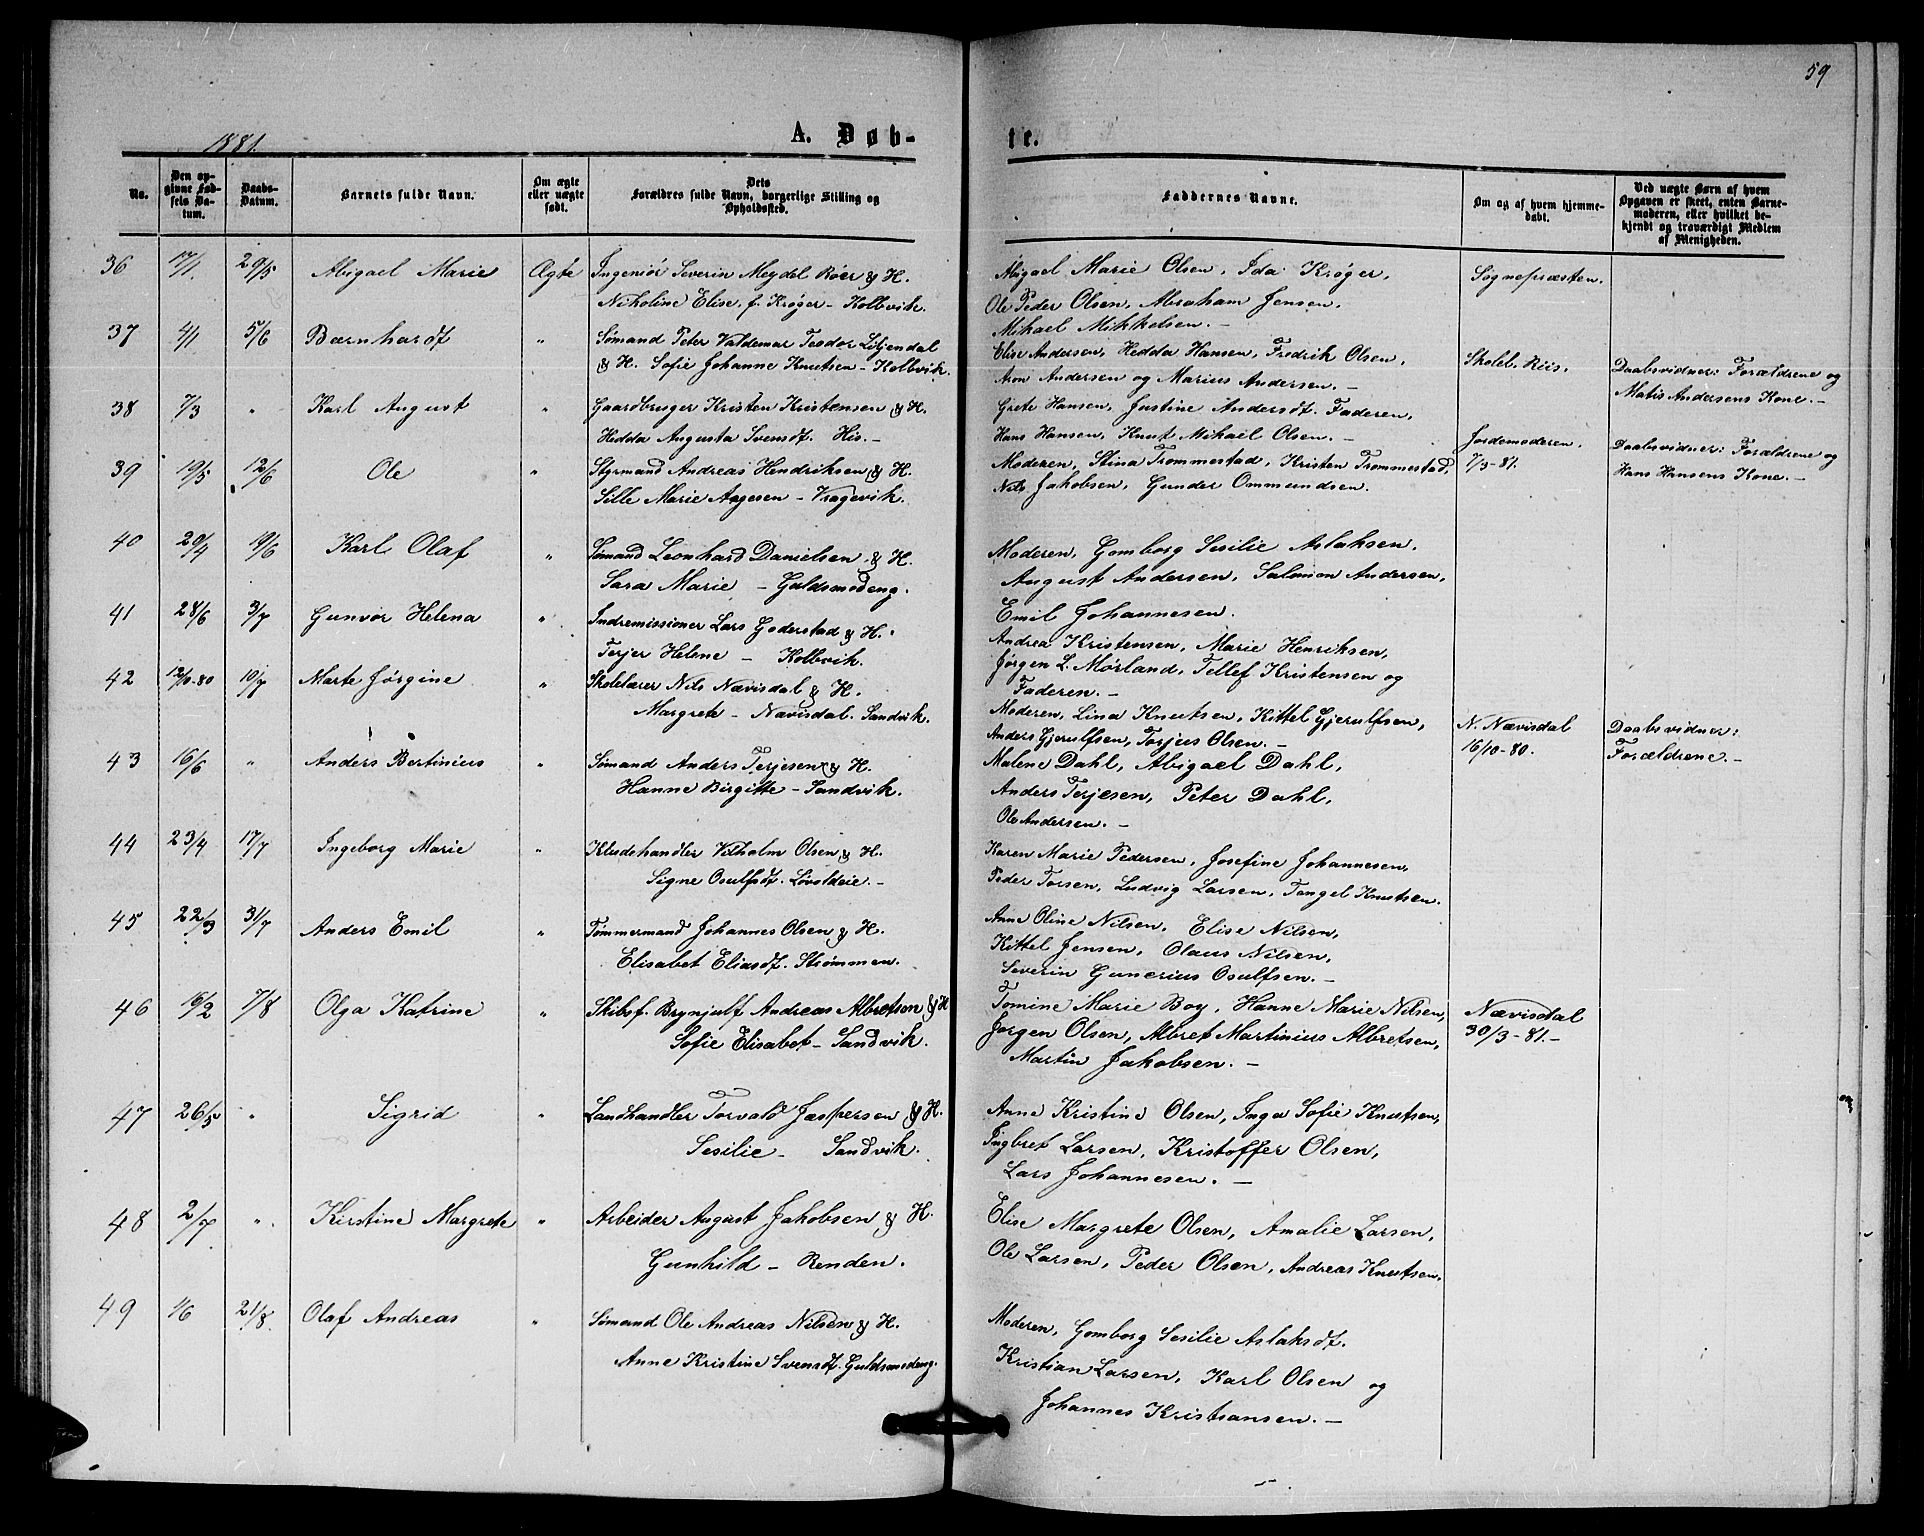 59
1881.
A. Døb-
te.
No.
Den op-
givne Fød-
sels Da-
tum.
Daabs-
Datum.
Barnets fulde Navn.
Om ægte
eller uægte
født.
Dets
Forældres fulde Navn, borgerlige Stilling og
Opholdssted.
Faddernes Navne.
Om og af hvem hjemme-
døbt.
Ved uægte Børn af hvem
Opgaven er skeet, enten Barne-
moderen, eller hvilket be-
kjendt og troværdigt Medlem
af Menigheden.
36 17/1 29/5 Abigael Marie Ægte Ingeniør Severin Meydel Bøer & H.
Nikoline Elise, f. Krøger - Kolbvik.
Abigael Marie Olsen, Ida Krøger,
Ole Peder Olsen, Abraham Jensen,
Mikael Mikkelsen. -
Sognepræsten.
37 4/1 5/6 Bærnhardt " Sømand Peter Valdemar Teodor Liljendal
& H. Sofie Johanne Knutsen - Kolbvik.
Elise Andersen, Hedda Hansen, Fredrik Olsen,
Aron Andersen og Marius Andersen. -
Skoleb. Riis.
Daabsvidner: Forældrene og
Matis Andersens Kone. -
38 7/3 " Karl August " Gaardbruger Kristen Kristensen & H.
Hedda Augusta Svensdt. His. -
Grete Hansen, Justine Andersdt. Faderen,
Hans Hansen, Knut Mikael Olsen. -
Jordemoderen.
7/3-81.
Daabsvidner: Forældrene og
Hans Hansens Kone. -
39 19/5 12/6 Ole " Styrmand Andreas Hendriksen & H.
Sille Marie Aagesen - Vragevik.
Moderen, Stina Trommestad, Kristen Trommestad,
Nils Jakobsen, Gunder Ommundsen.
40 20/4 19/6 Karl Olaf " Sømand Leonhard Danielsen & H.
Sara Marie - Guldsmedeng.
Moderen, Gomborg Sesilie Aslaksen,
August Andersen, Salomon Andersen,
Emil Johannesen.
41 28/6 3/7 Gunvor Helena " Indremissioner Lars Goderstad & H.
Terjer Helene - Kolbvik.
Andrea Kristensen, Marie Henriksen,
Jørgen L. Mørland, Tellef Kristensen og
Faderen. -
42 12/10-80 10/7 Marte Jørgine " Skolelærer Nils Nævisdal & H.
Margrete - Nævisdal. Sandvik.
Moderen, Lina Knutsen, Kittel Gjerulfsen,
Anders Gjerulfsen, Torjus Olsen. -
N. Nævisdal
16/10-80.
Daabsvidner:
Forældrene. -
43 16/6 " Anders Bertinius " Sømand Anders Terjesen & H.
Hanne Birgitte - Sandvik.
Malene Dahl, Abigael Dahl,
Anders Terjesen, Peter Dahl,
Ole Andersen. -
44 23/4 17/7 Ingeborg Marie " Kludehandler Vilholm Olsen & H.
Signe Osulfsdt. Løvoldeie. -
Karen Marie Pedersen, Josefine Johannesen,
Peder Torsen, Ludvig Larsen, Tangel Knutsen.
45 22/3 31/7 Anders Emil " Tømmermand Johannes Olsen & H.
Elisabet Eliasdt. Strømmen.
Anne Oline Nilsen, Elise Nilsen,
Kittel Jensen, Olaus Nilsen,
Severin Gunerius Osulfsen. -
46 16/2 7/8 Olga Katrine " Skibsf. Brynjulf Andreas Albretson & H
Sofie Elisabet - Sandvik.
Tomine Marie Boy, Hanne Marie Nilsen,
Jørgen Olsen, Albret Martinius Albretsen,
Martin Jakobsen. -
Nævisdal
30/3-81. -
47 26/5 " Sigrid " Landhandler Torvald Jæspersen & H.
Sesilie - Sandvik.
Anne Kristine Olsen, Inga Sofie Knutsen,
Ingbret Larsen, Kristoffer Olsen,
Lars Johannesen. -
48 2/7 " Kirstine Margrete " Arbeider August Jakobsen & H.
Gunhild - Renden.
Elise Margrete Olsen, Amalie Larsen,
Ole Larsen, Peder Olsen, Andreas Knutsen.
49 1/6 21/8 Olaf Andreas " Sømand Ole Andreas Nilsen & H.
Anne Kristine Svensdt. Guldsmedeng.
Moderen, Gomborg Sesilie Aslaksdt.
Kristian Larsen, Karl Olsen og
Johannes Kristiansen. -